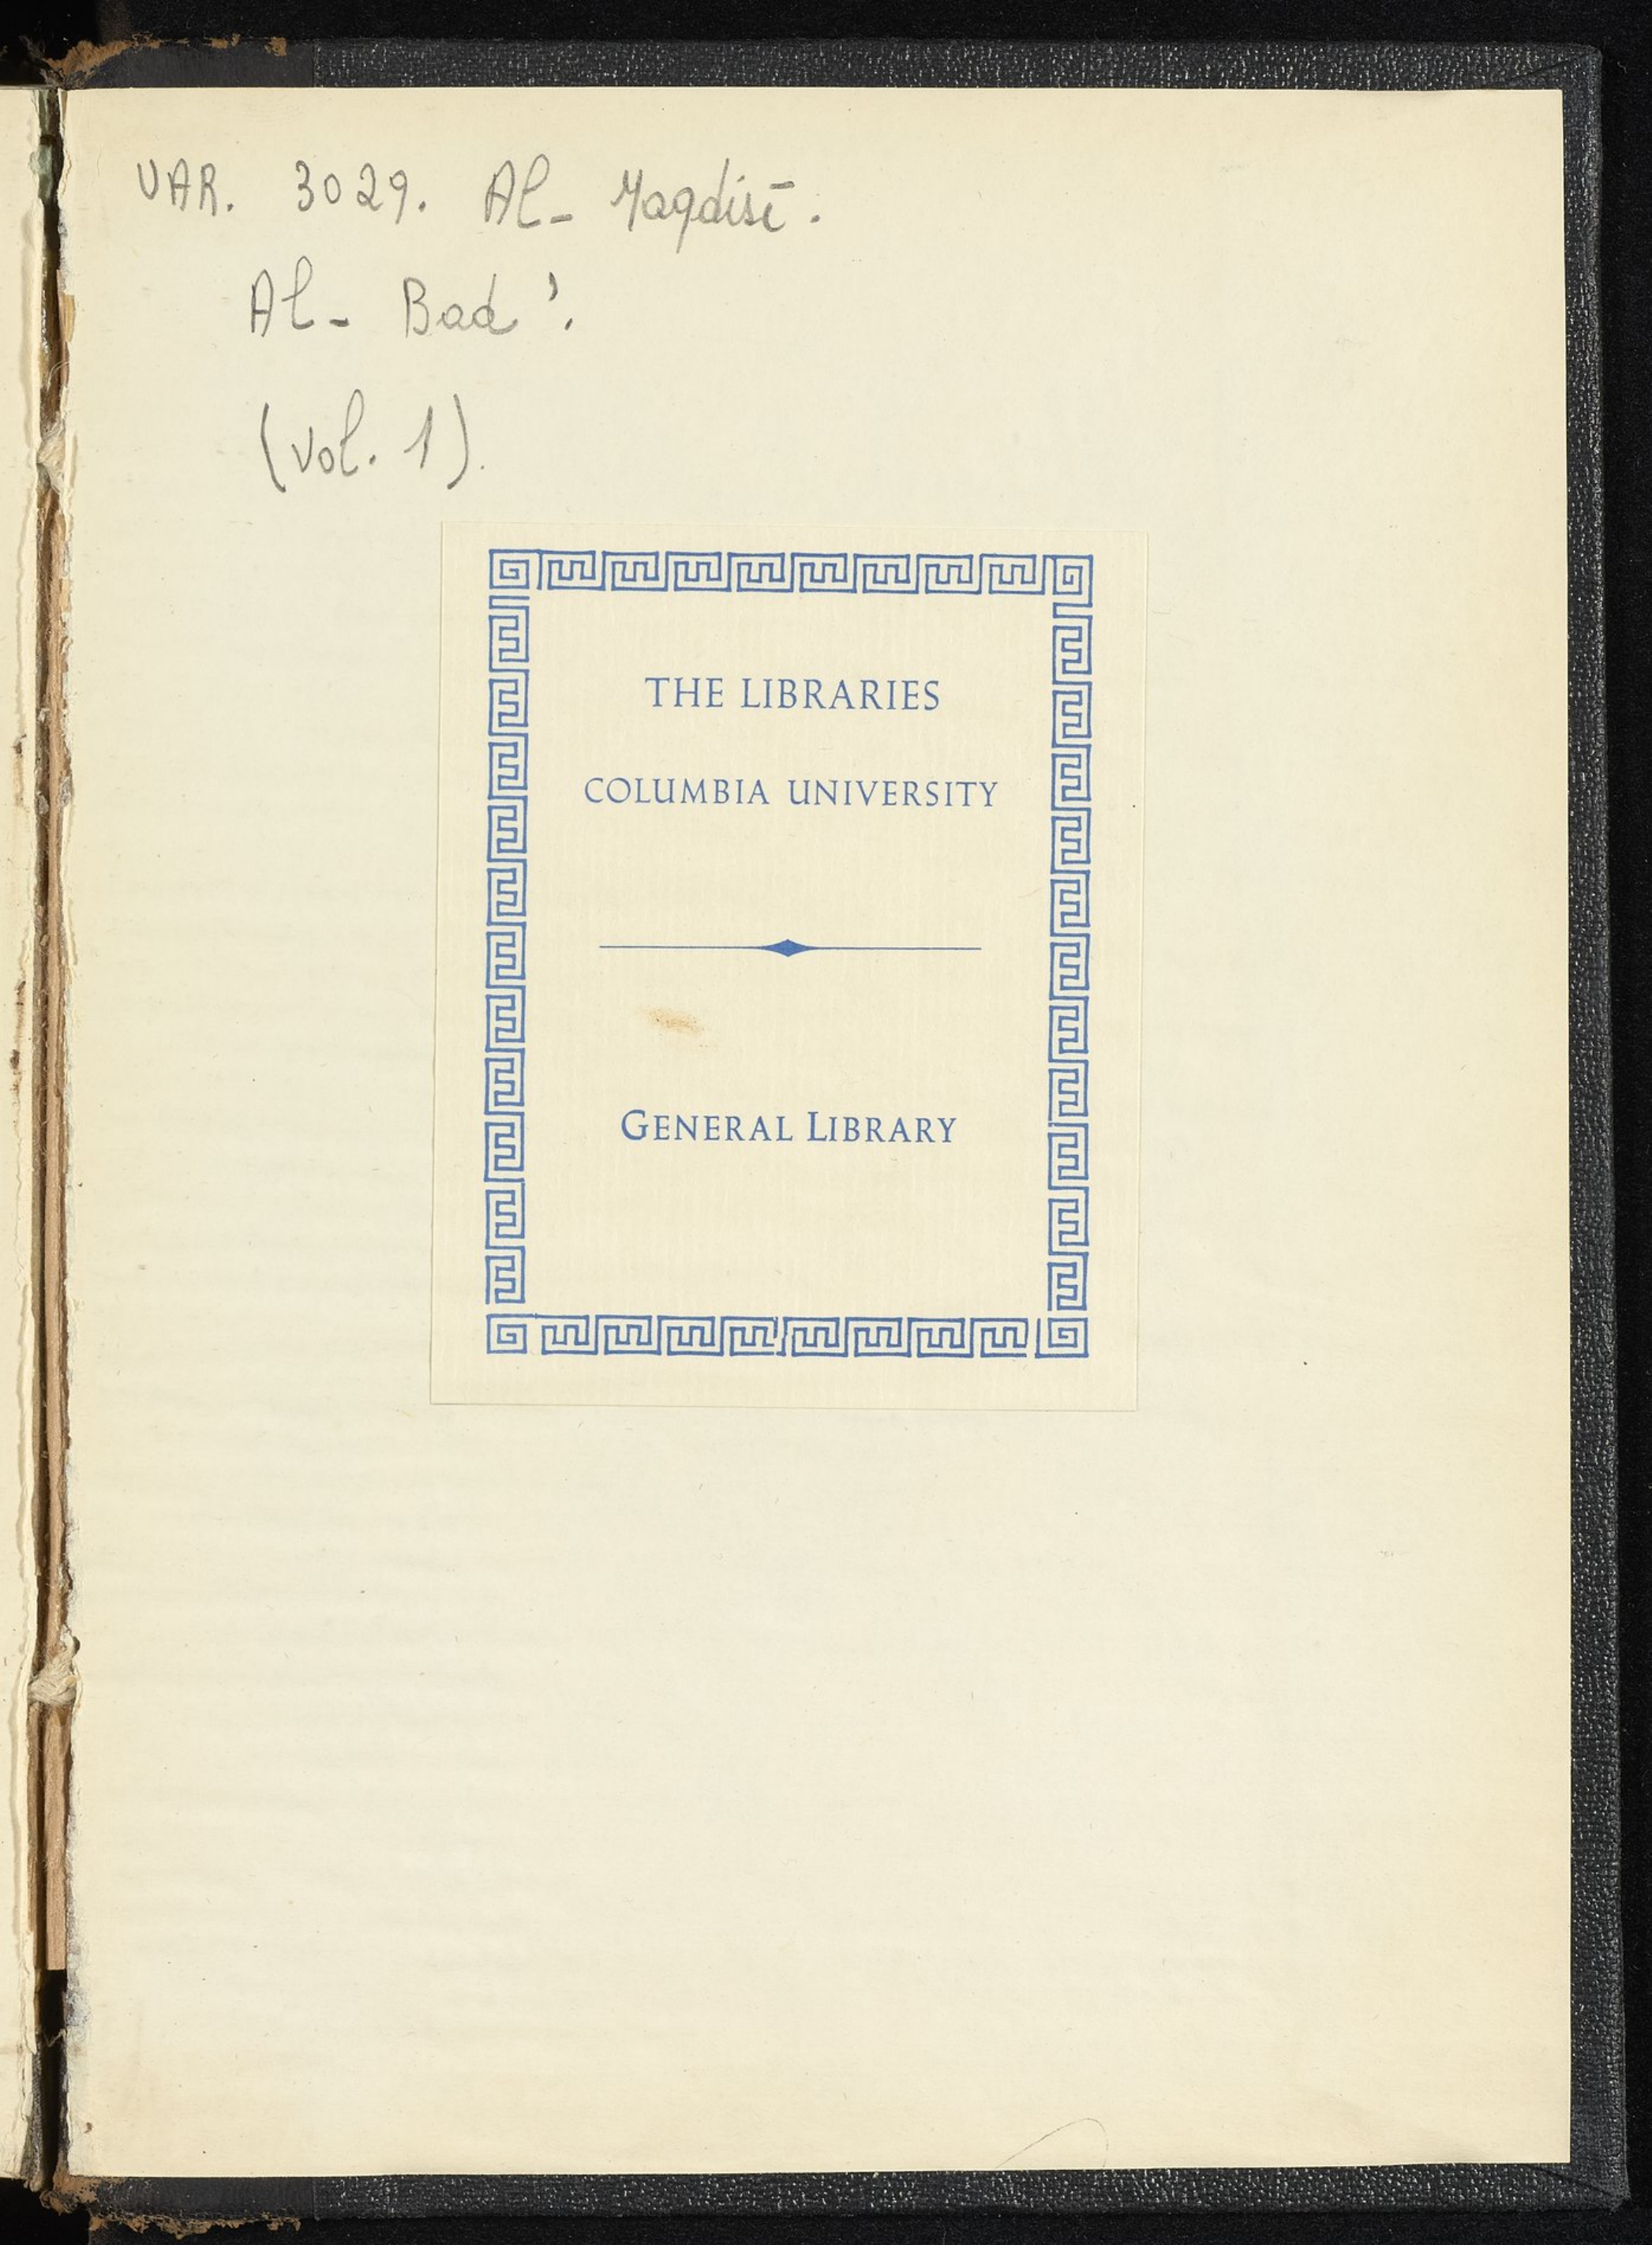 VAR. 3029. Al- Maqdisī.
Al- Bad'.
(vol. 1).
THE LIBRARIES
COLUMBIA UNIVERSITY
GENERAL LIBRARY